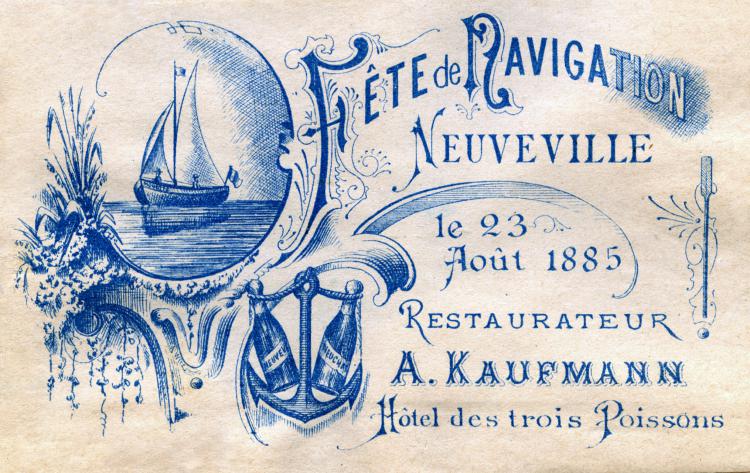 FÊTE de NAVIGATION
NEUVEVILLE
le 23
Août 1885
RESTAURATEUR
A. KAUFMANN
Hôtel des trois Poissons